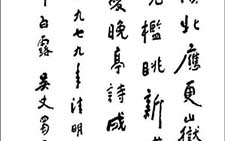 北應更山嶽
檻眺新
愛晚亭詩成
九七九年清明
白露 吴丈蜀